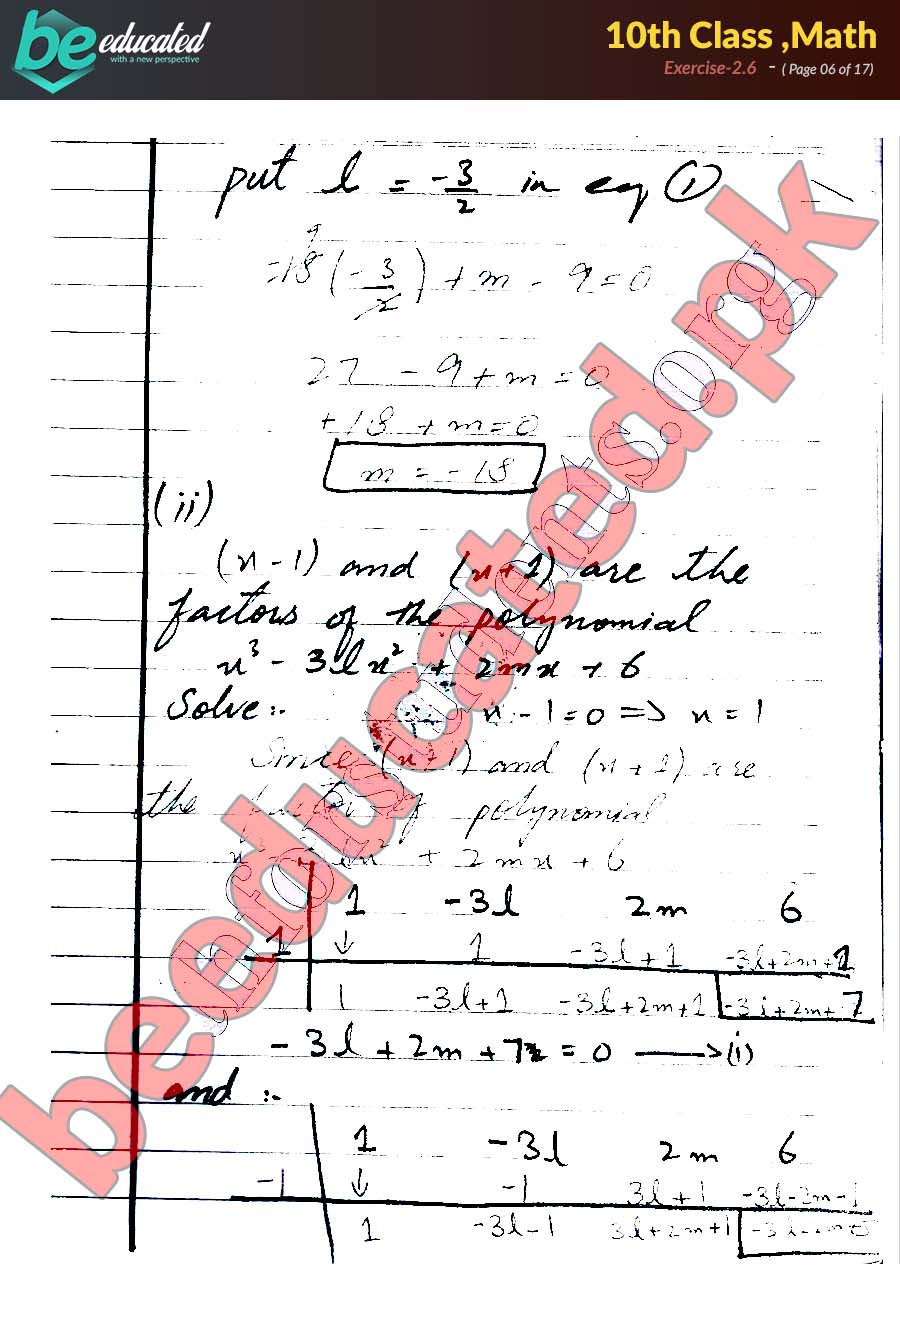 be educated
with a new perspective
10th Class ,Math
Exercise-2.6 - ( Page 06 of 17)
put l = -3/2 in eq (i)
=18(-3/2) + m - 9 = 0
9
27 - 9 + m = 0
+18 + m = 0
m = -18
(ii)
(x - 1) and (x + 1) are the
factors of the polynomial
x³ - 3lx² + 2mx + 6
Solve:- x - 1 = 0 => x = 1
Since (x - 1) and (x + 1) are
the polynomial
+ 2mx + 6
1 -3l 2m 6
1 ↓ 1 -3l+1 -3l+2m+1
1 -3l+1 -3l+2m+1 -3l+2m+7
-3l + 2m + 7 = 0 ⟶ (i)
and :-
1 -3l 2m 6
-1 ↓ -1 3l+1 -3l-2m-1
1 -3l-1 3l+2m+1 -3l-2m+5
beeducated.pk